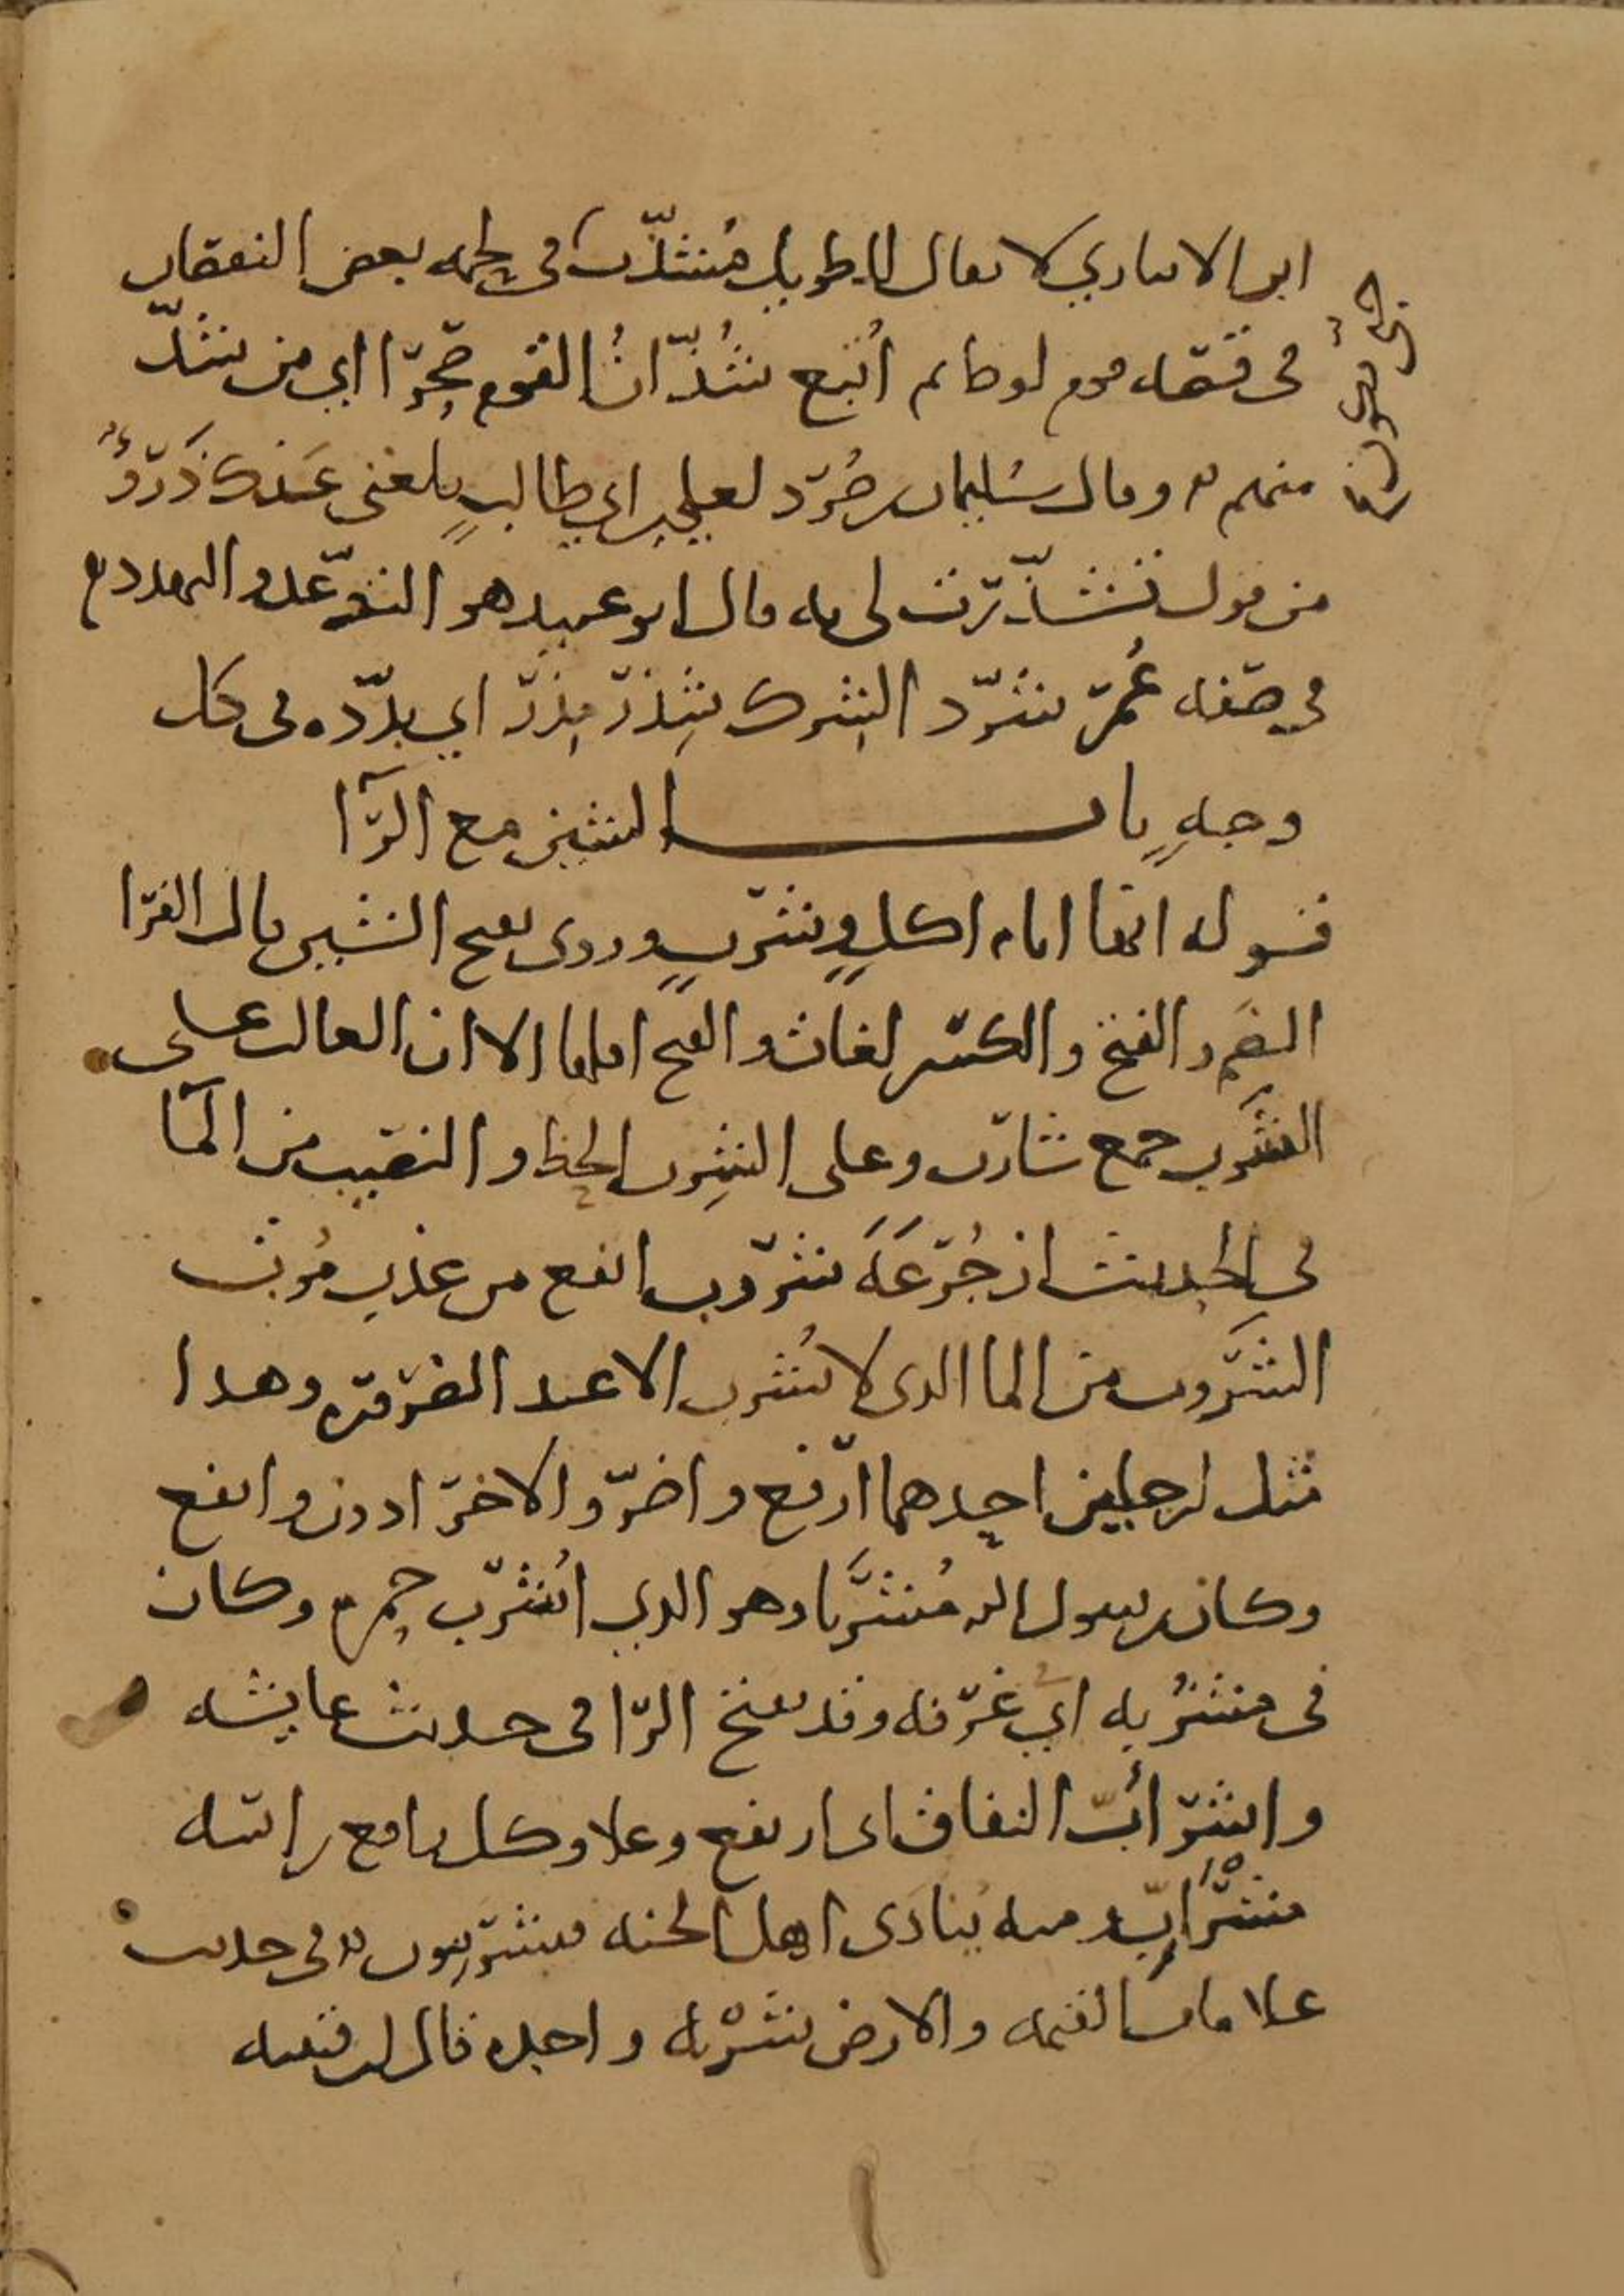 ابن الانباري لا يقال للطويل مُشذّب حتى في لحمه بعض النقصان
في قصّه قوم لوط ثم اُتبع شُذّانُ القوم صخرًا اي من شذّ
منهم ه وقال سُليمان بن صُرَد لعلي بن ابي طالبٍ بلغني عَنك ذَرْوٌ
من قول تشذّرت لي به قال ابو عبيد هو التوعّد والتهدد ه
في صفه عُمر شرّد الشرك شِذَر مِذَر اي بدّده في كل
وجهٍ باب الشين مع الرّآ
قوله انها ايام اكلٍ وشربٍ وروى بفتح الشين قال الفرّا
الضم والفتح والكسر لغات والفتح اقلها الا ان الغالب على
الشَرب جمع شارب وعلى الشِرب الحظ والنصيب من المآ
في الحديث ان جُرْعَهَ شروب انفع من عذب مُوبٍ
الشَّروب من الما الذي لا يُشرب الا عند الضروره وهذا
مثل لرجلين احدهما ارفع واضرّ والاخر ادون وانفع
وكان رسول الله مُشرَّبا وهو الذي اُشرب حمره وكان
في مشرُبه اي غرفه وقد يفتح الرا في حديث عايشه
واشرأبّ النفاق اي ارتفع وعلا وكل رافع راسه
مشرَئبّ ومنه يُنادَى اهل الجنه فيشرئبون ه في حديث
علامات القيمه والارض شَرْبه واحده قال ابن قتيبه